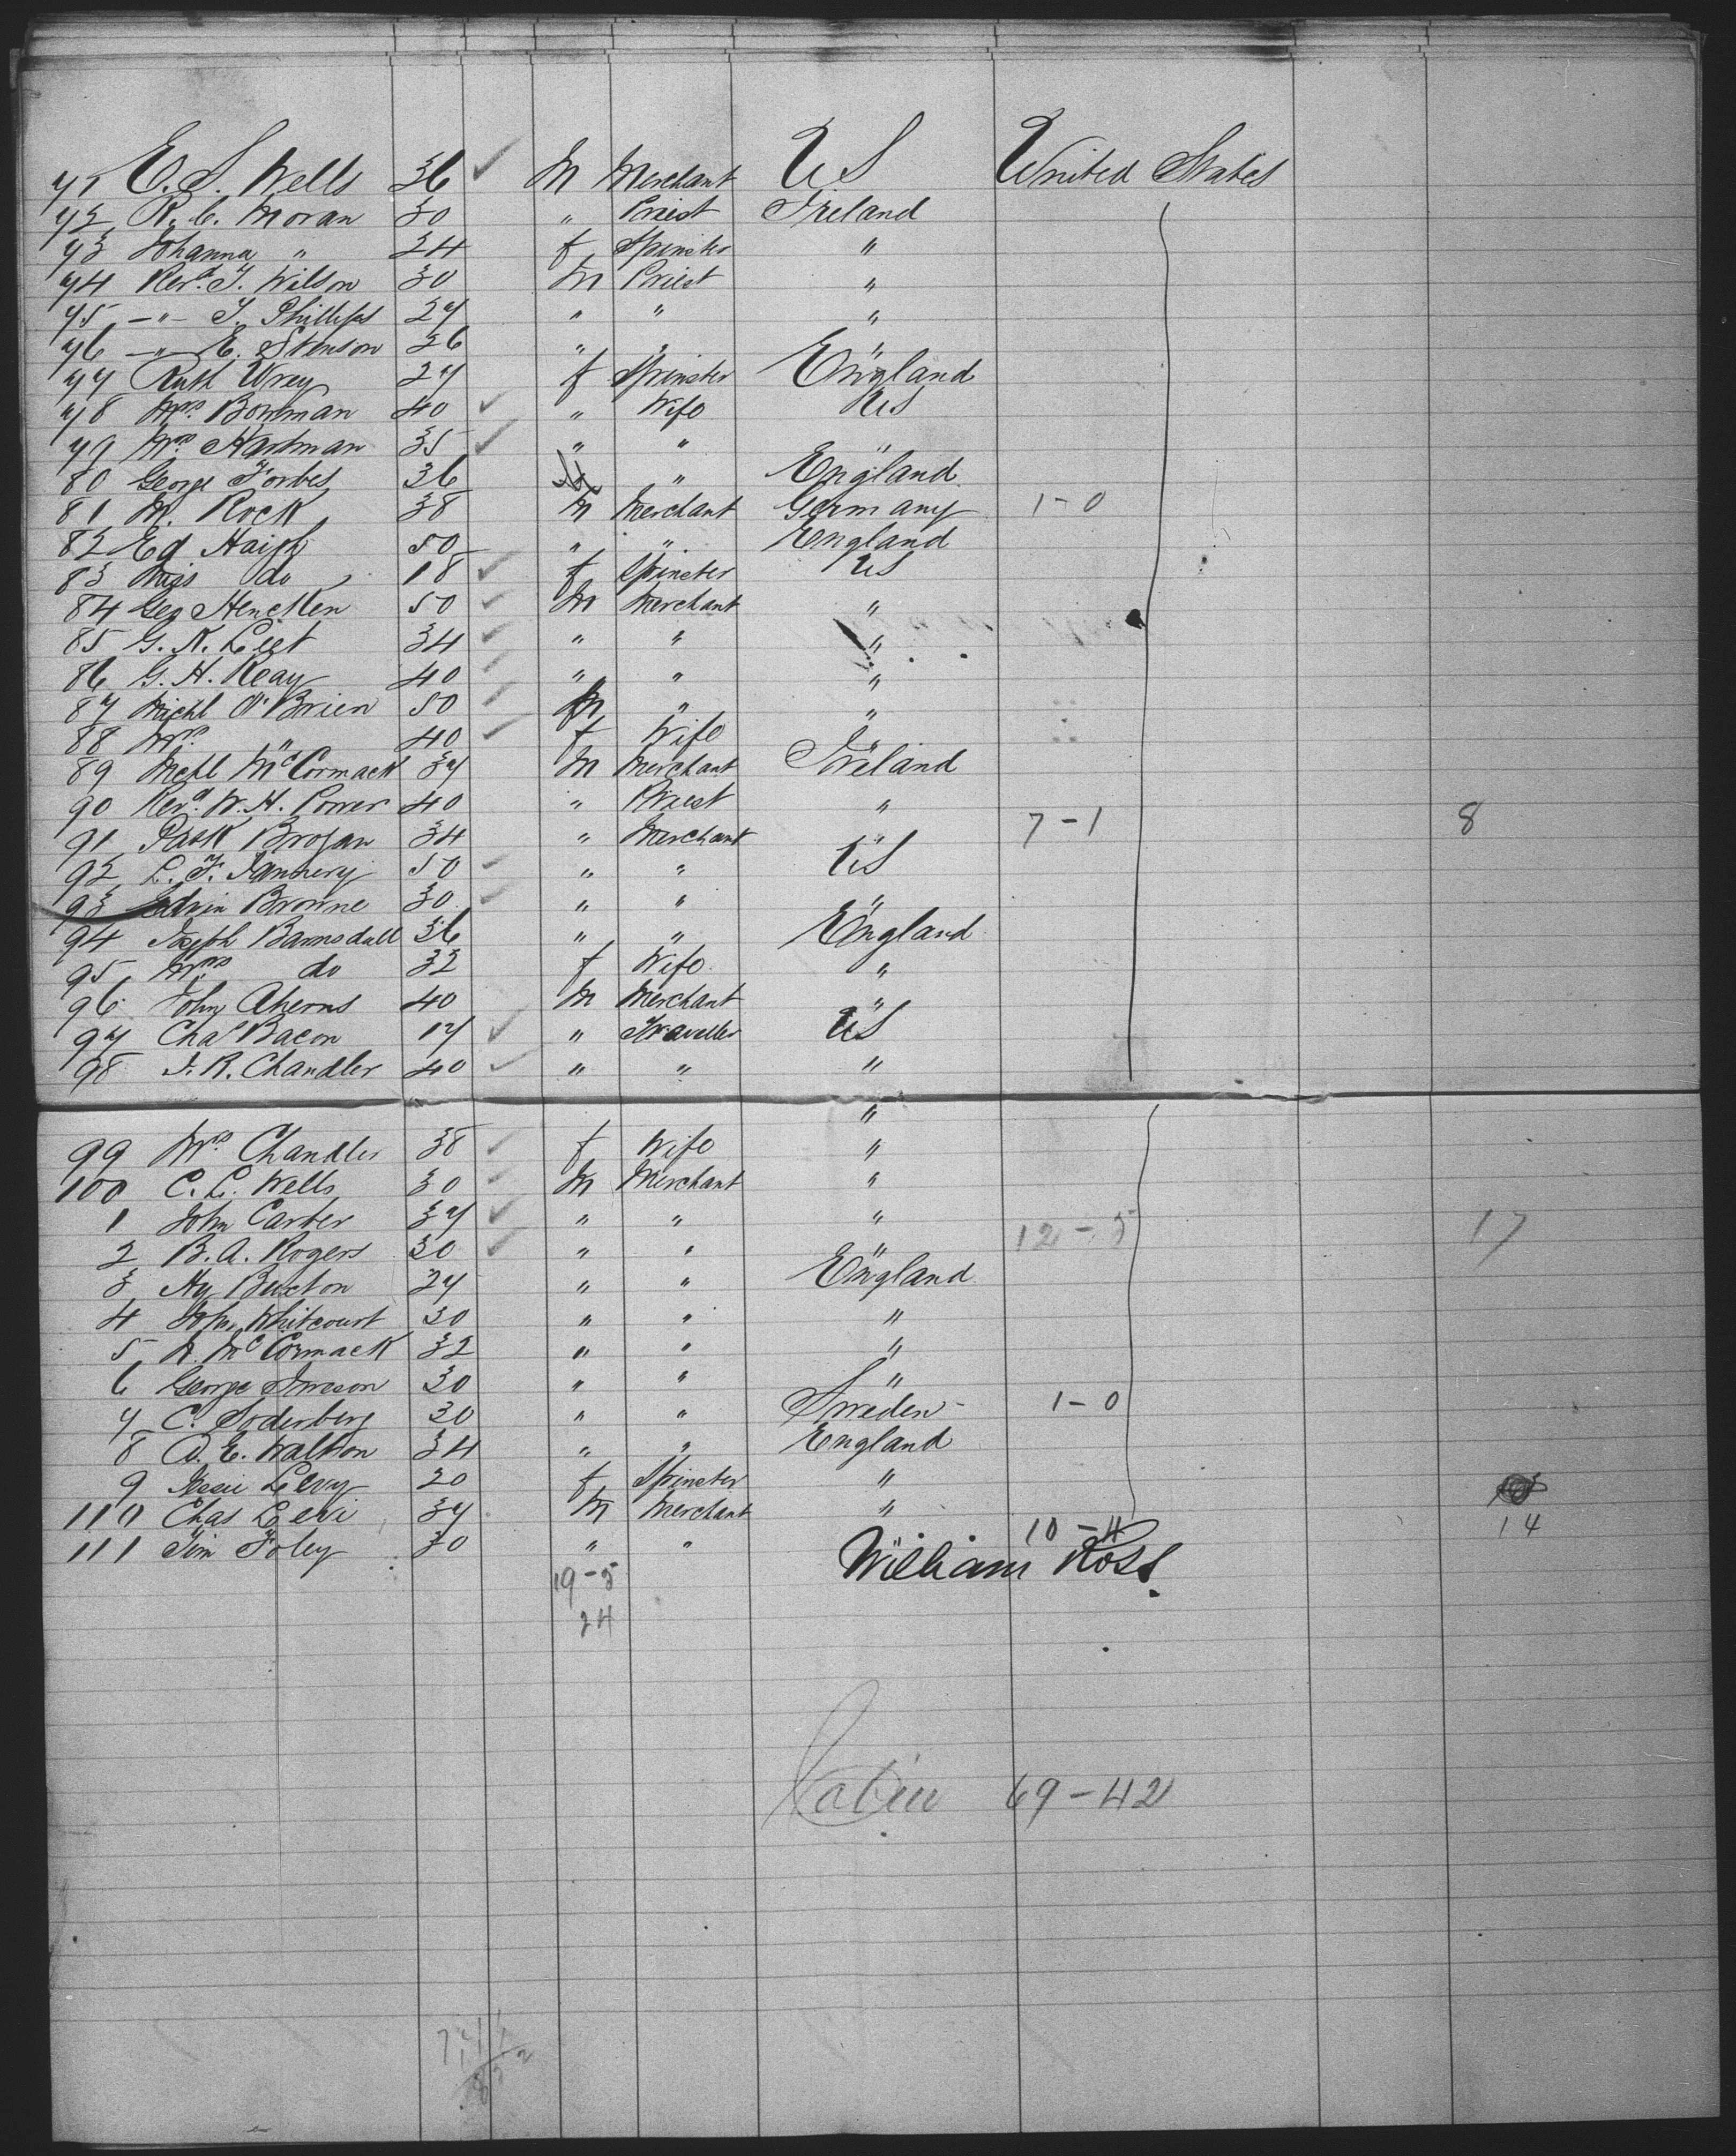 71 E. S. Wells 36 ✓ M Merchant US United States
72 R. C. Moran 30 " Priest Ireland
73 Johanna " 24 f Spinster "
74 Revd. T. Wilson 30 M Priest "
75 -"- T. Phillips 27 " " "
76 -"- E. Stenson 26 " " "
77 Ruth Wrey 27 f Spinster England
78 Mrs. Bowman 40 ✓ " Wife US
79 Mrs. Hartman 35 ✓ " " "
80 George Forbes 36 " England
81 M. Rock 38 M Merchant Germany 1-0
82 Ed Haigh 50 " " England
83 Miss do 18 ✓ f Spinster US
84 Geo Hencken 50 ✓ M Merchant "
85 G. K. Leet 34 ✓ " " "
86 G. H. Reay 40 ✓ " " "
87 Michl O'Brien 50 ✓ M " "
88 Mrs. " 40 ✓ f Wife "
89 Mchl McCormack 37 M Merchant Ireland
90 Revd. W. H. Power 40 " Priest "
91 Patk Brogan 34 " Merchant " 7-1 8
92 L. F. Tannery 50 ✓ " " US
93 Edwin Browne 30 ✓ " " "
94 Joseph Barnsdall 36 " " England
95 Mrs do 32 f Wife "
96 John Aherns 40 M Merchant "
97 Chas Bacon 17 ✓ " Traveller US
98 J. R. Chandler 40 ✓ " " "
"
99 Mrs Chandler 38 ✓ f Wife "
100 C. L. Wells 30 ✓ M Merchant "
1 John Carter 37 ✓ " " " 12-5 17
2 B. A. Rogers 30 ✓ " " "
3 Hy Buxton 27 " " England
4 John Whitcourt 30 " " "
5 N. McCormack 32 " " "
6 George Iveson 30 " " "
7 C. Soderberg 30 " " Sweden 1-0
8 A. E. Walton 34 " " England
9 Jessie Levy 20 f Spinster "
110 Chas Levi 37 M Merchant " 10-4 14
111 Tim Foley 70 " " William Ross.
19-5
24
Cabin 69-42